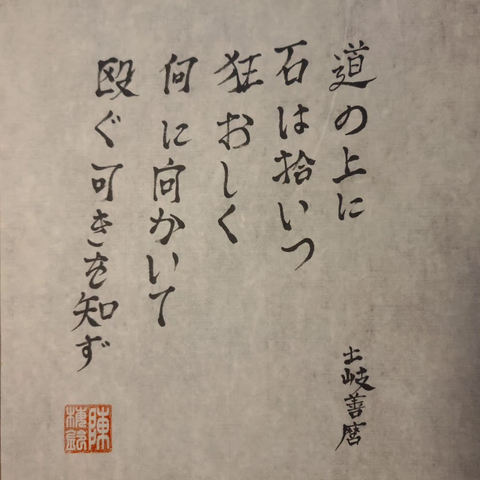 道の上に
石は拾いつ
狂おしく
何に向かいて
殴ぐ可きを知ず
土岐善麿